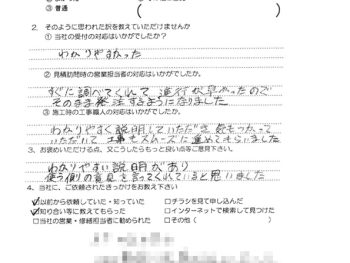 ③ 普通
2. そのように思われた訳を教えていただけませんか
① 当社の受付の対応はいかがでしたか？
わかりやすかった
② 見積訪問時の営業担当者の対応はいかがでしたか。
すぐに調べてくれて 進行が早かったので
そのまま発注するようになりました
③ 施工時の工事職人の対応はいかがでしたか。
わかりやすく説明していただき 気もつかって
いただいて 工事もスムーズに進めてもらいました
3. お褒めいただける点、又こうしたらもっと良い点等ご意見下さい。
わかりやすい説明があり
使う側の意見を言ってくれていると思いました
4. 当社に、ご依頼されたきっかけをお教え下さい
☑以前から依頼していた・知っていた □チラシを見て申し込んだ
☑知り合い等に教えてもらった □インターネットで検索して見つけた
□当社の営業・修繕担当者に勧められた □その他（ ）